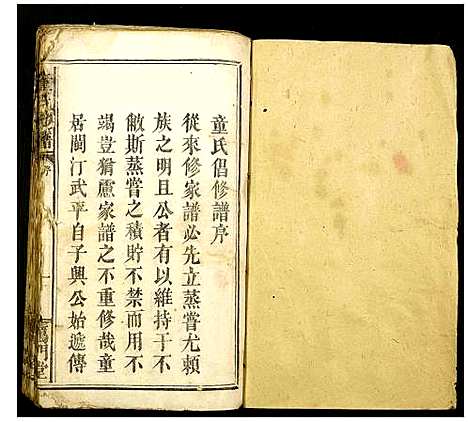 童氏倡修譜序
從來修家譜必先立蒸嘗尤賴
族之明且公者有以維持于不
敝斯蒸嘗之積貯不禁而用不
竭豈猶慮家譜之不重修哉童
居閩汀武平自子興公始遞傳